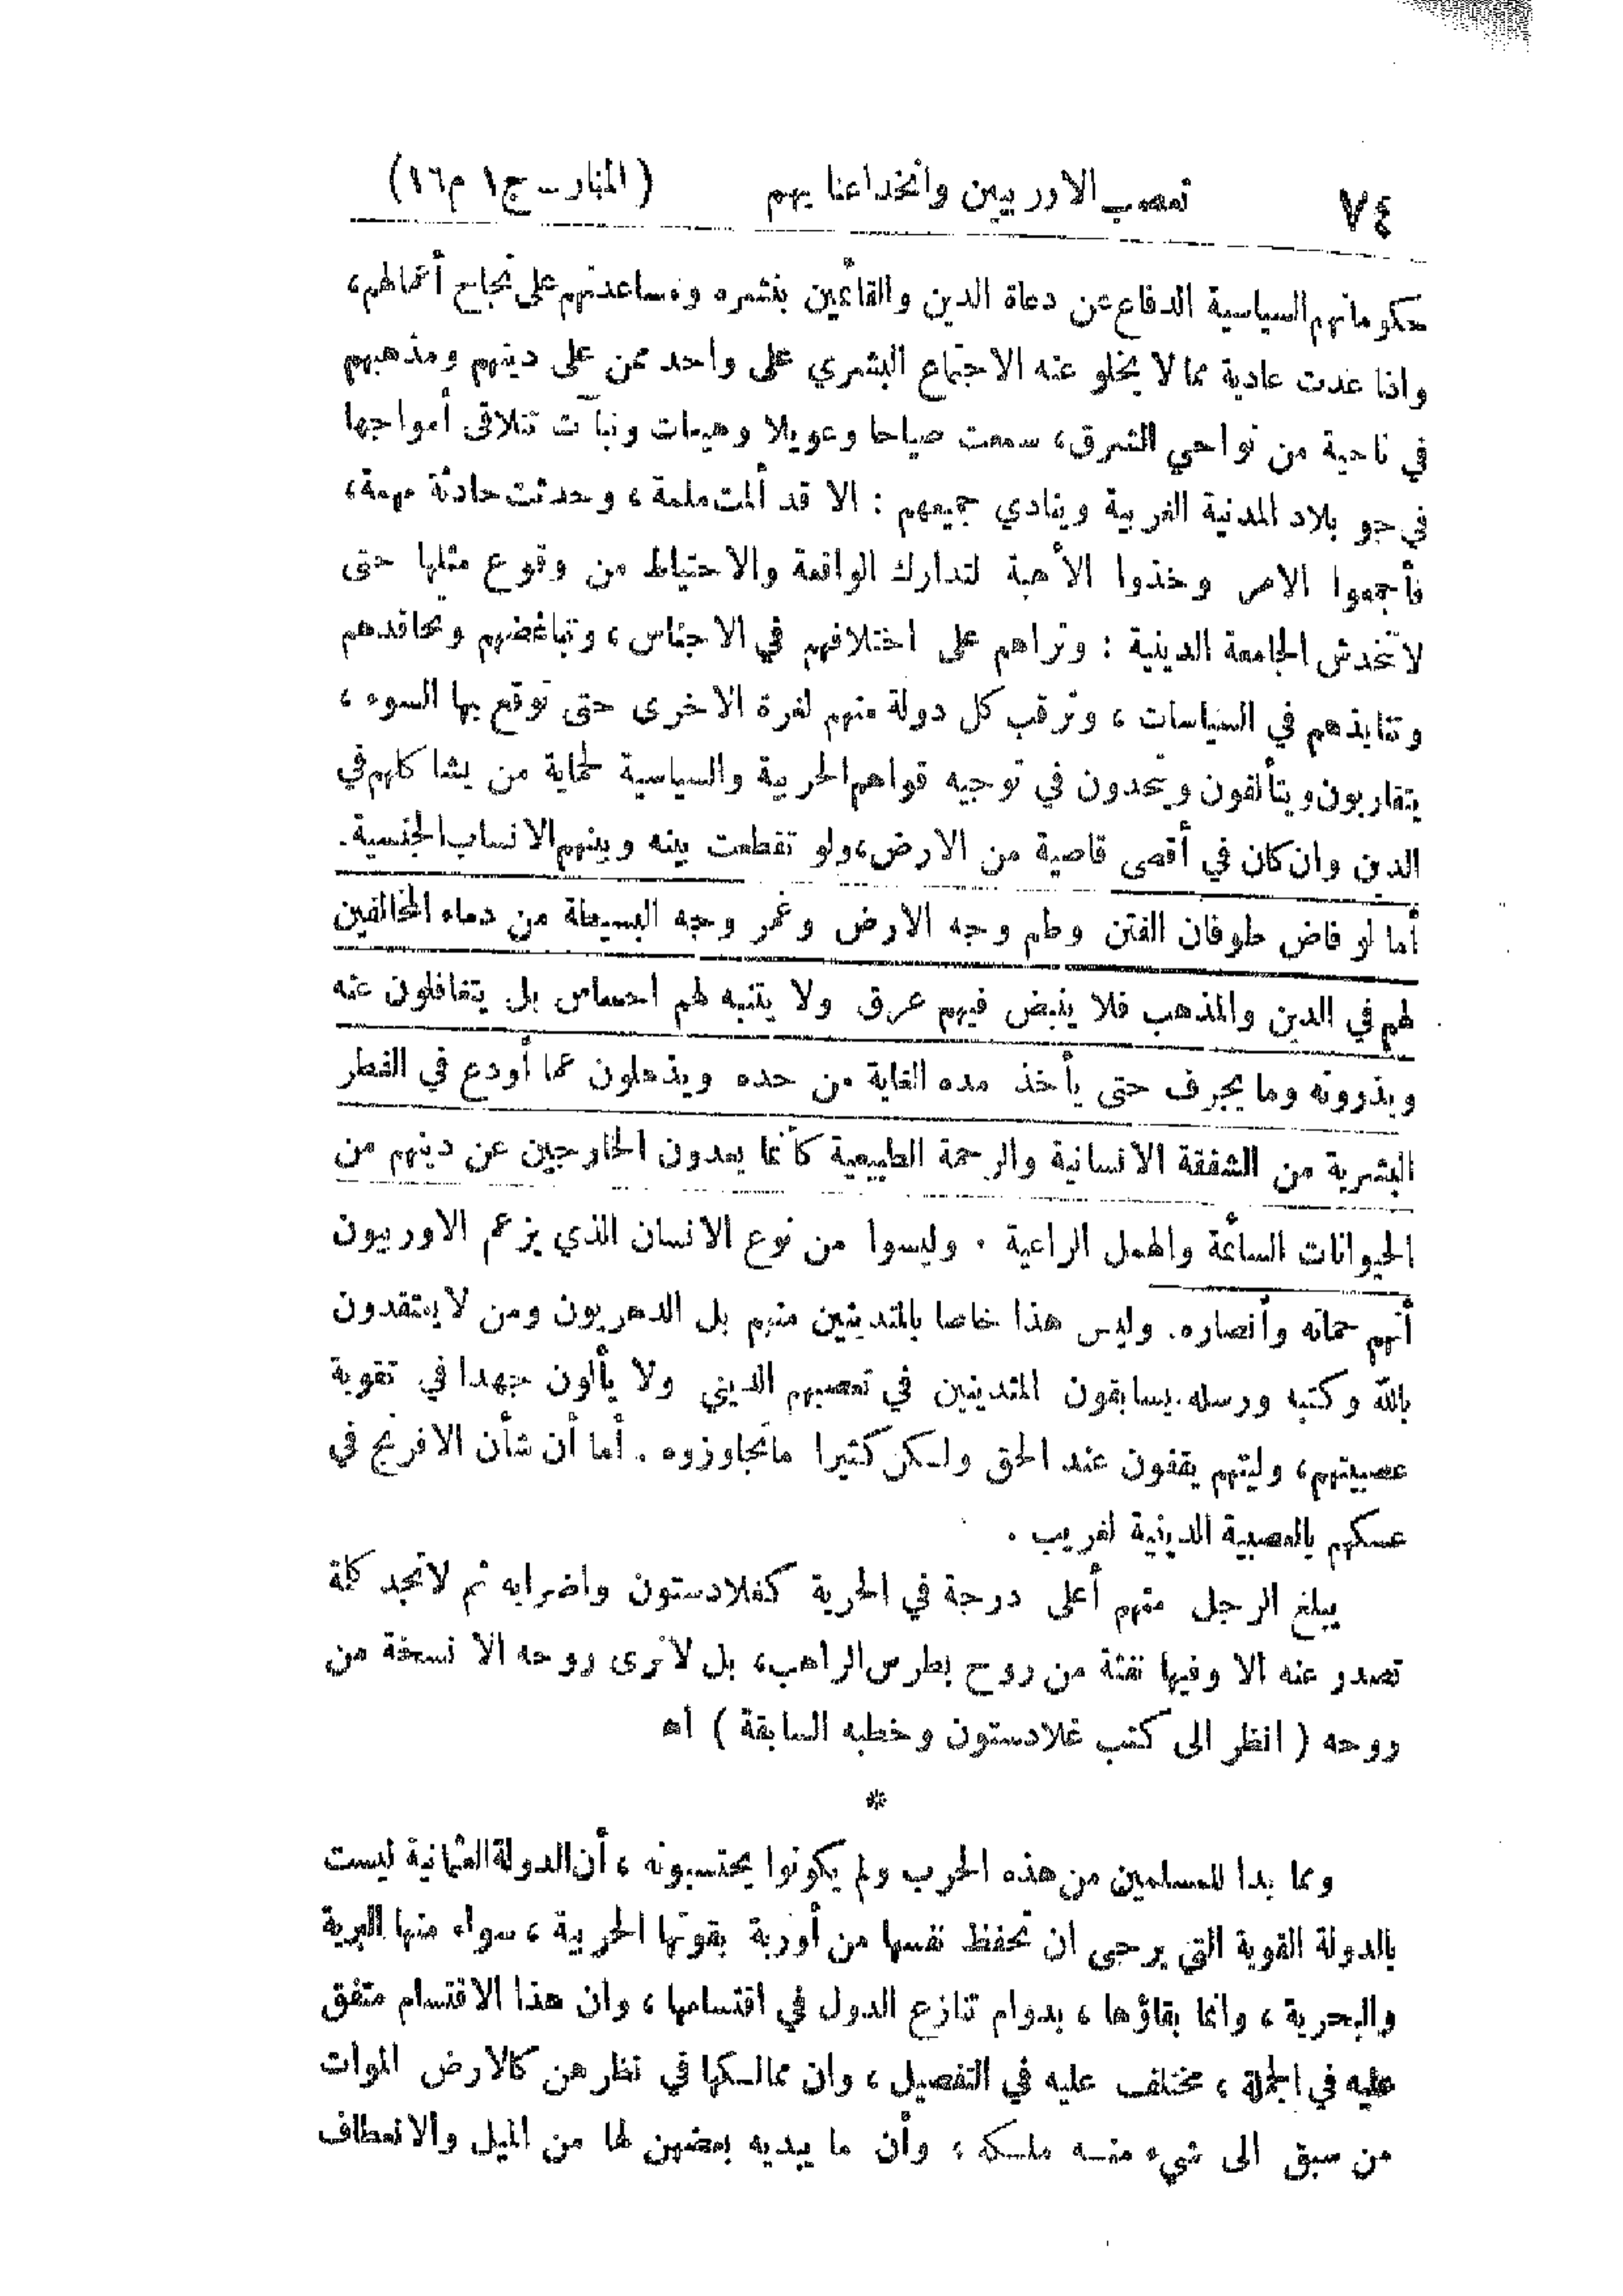 ٧٤ تعصب الاوربيين وانخداعنا بهم (المنار – ج١ م١٦)
حكوماتهم السياسية الدفاع عن دعاة الدين والقائمين بنشره ومساعدتهم على نجاح أعمالهم،
واذا عدت عادية مما لا يخلو عنه الاجتماع البشري على واحد ممن على دينهم ومذهبهم
في ناحية من نواحي الشرق، سمعت صياحا وعويلا وهيعات ونبآت تتلاقى أمواجها
في جو بلاد المدنية الغربية وينادي جميعهم : الا قد ألمت ملمة ، وحدثت حادثة مهمة،
فأجمعوا الامر وخذوا الأهبة لتدارك الواقعة والاحتياط من وقوع مثلها حتى
لا تخدش الجامعة الدينية : وتراهم على اختلافهم في الاجناس ، وتباغضهم وتحاقدهم
وتنابذهم في السياسات ، وترقب كل دولة منهم لغرة الاخرى حتى توقع بها السوء ،
يتقاربون ويتألفون ويتحدون في توجيه قواهم الحربية والسياسية لحماية من يشاكلهم في
الدين وان كان في أقصى قاصية من الارض، ولو تقطعت بينه وبينهم الانساب الجنسية.
أما لو فاض طوفان الفتن وطم وجه الارض وغمر وجه البسيطة من دماء المخالفين
لهم في الدين والمذهب فلا ينبض فيهم عرق ولا يتنبه لهم احساس بل يتغافلون عنه
ويذرونه وما يجرف حتى يأخذ مده الغاية من حده ويذهلون عما أودع في الفطر
البشرية من الشفقة الانسانية والرحمة الطبيعية كأنما يعدون الخارجين عن دينهم من
الحيوانات السائمة والهمل الراعية . وليسوا من نوع الانسان الذي يزعم الاوربيون
أنهم حماته وأنصاره. وليس هذا خاصا بالمتدينين منهم بل الدهريون ومن لا يعتقدون
بالله وكتبه ورسله يسابقون المتدينين في تعصبهم الديني ولا يألون جهدا في تقوية
عصبيتهم، وليتهم يقفون عند الحق ولكن كثيرا ما تجاوزوه . أما أن شأن الافرنج في
تمسكهم بالعصبية الدينية لغريب .
يبلغ الرجل منهم أعلى درجة في الحرية كغلادستون واضرابه ثم لا تجد كلمة
تصدر عنه الا وفيها نفثة من روح بطرس الراهب، بل لا ترى روحه الا نسخة من
روحه ( انظر الى كتب غلادستون وخطبه السابقة ) اه
*
ومما بدا للمسلمين من هذه الحرب ولم يكونوا يحتسبونه ، أن الدولة العثمانية ليست
بالدولة القوية التي يرجى ان تحفظ نفسها من أوربة بقوتها الحربية ، سواء منها البرية
والبحرية ، وانما بقاؤها ، بدوام تنازع الدول في اقتسامها ، وان هذا الاقتسام متفق
عليه في الجملة ، مختلف عليه في التفصيل ، وان ممالكها في نظرهن كالارض الموات
من سبق الى شيء منه ملكه ، وأن ما يبديه بعضهن لها من الميل والانعطاف